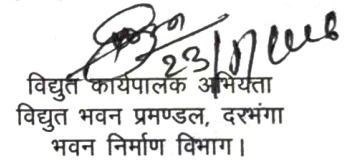 विद्युत कार्यपालक अभियंता
विद्युत भवन प्रमण्डल, दरभंगा
भवन निर्माण विभाग।